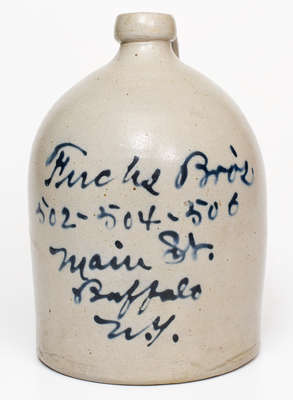 Fuchs Bro's
502-504-506
Main St.
Buffalo
N.Y.